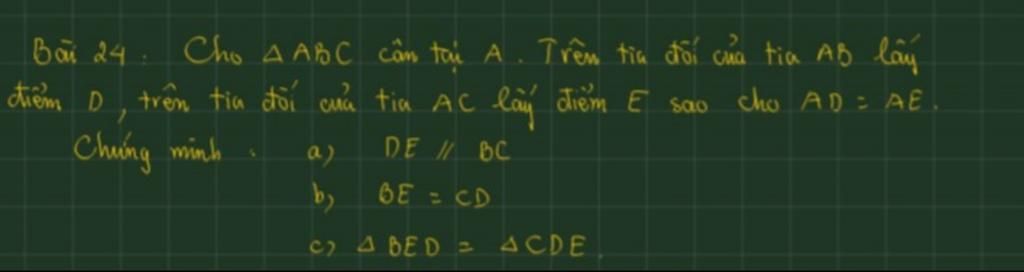 Bài 24 : Cho Δ ABC cân tại A . Trên tia đối của tia AB lấy
điểm D , trên tia đối của tia AC lấy điểm E sao cho AD = AE .
Chứng minh : a) DE // BC
b) BE = CD
c) Δ BED = Δ CDE .